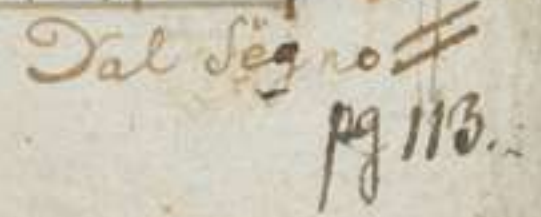 Dal Segno
pg 113.